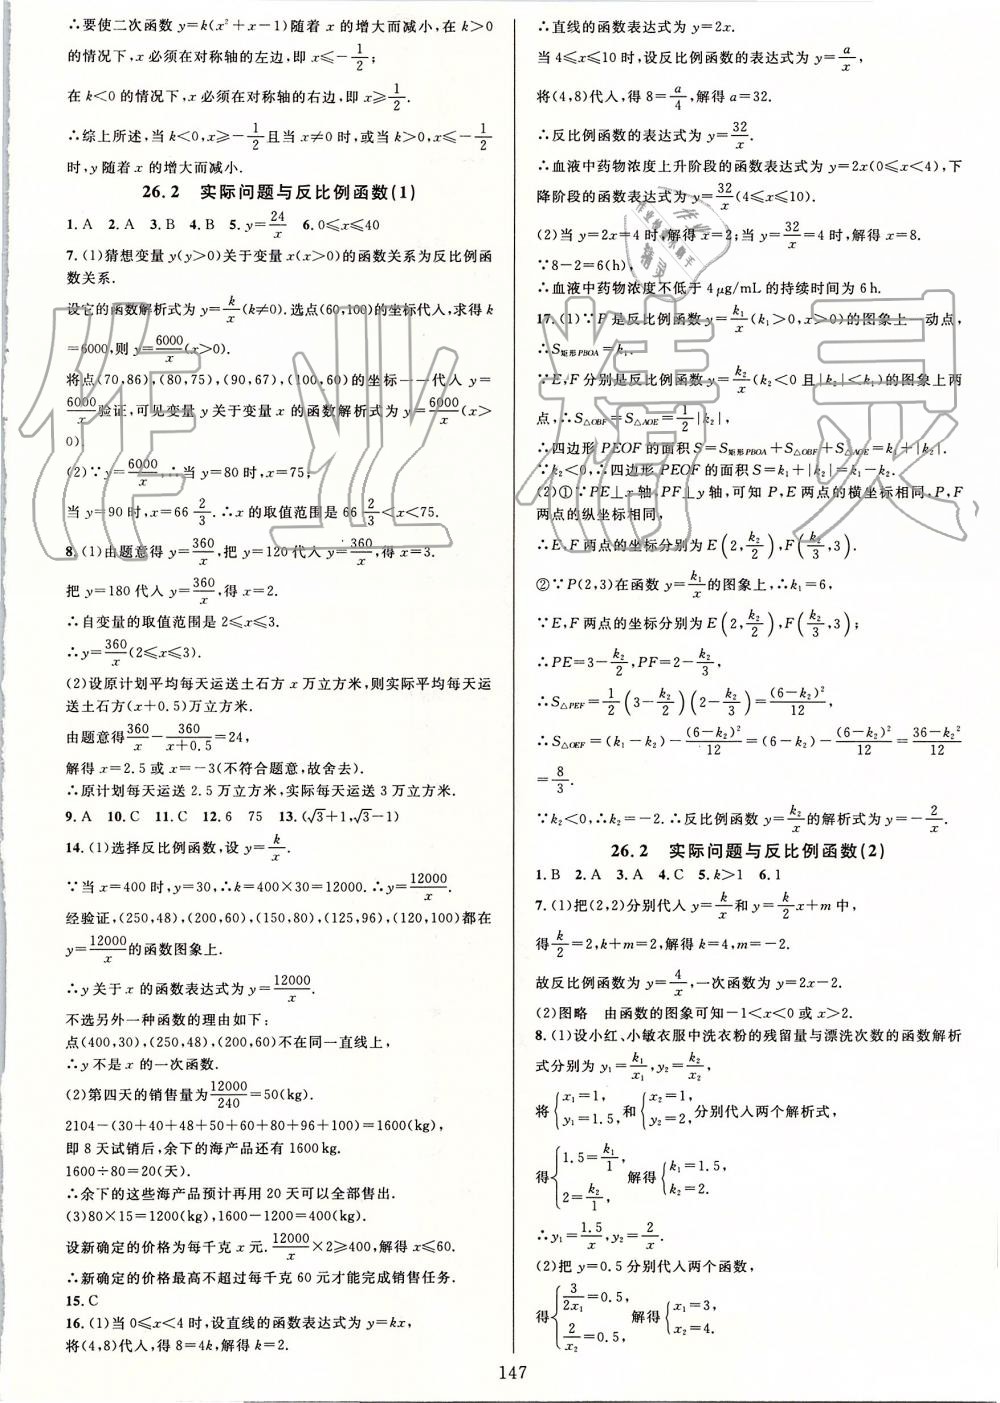 ∴要使二次函数 y=k(x²+x-1)随着 x 的增大而减小,在 k>0
的情况下,x 必须在对称轴的左边,即 x≤-1/2;
在 k<0 的情况下,x 必须在对称轴的右边,即 x≥-1/2.
∴综上所述,当 k<0,x≥-1/2且当 x≠0 时,或当 k>0,x≤-1/2
时,y 随着 x 的增大而减小.
26.2 实际问题与反比例函数(1)
1. A 2. A 3. B 4. B 5. y=24/x 6. 0≤x≤40
7. (1)猜想变量 y(y>0)关于变量 x(x>0)的函数关系为反比例函
数关系.
设它的函数解析式为 y=k/x(k≠0). 选点(60,100)的坐标代入,求得 k
=6000,则 y=6000/x(x>0).
将点(70,86),(80,75),(90,67),(100,60)的坐标一一代入 y=
6000/x验证,可见变量 y 关于变量 x 的函数解析式为 y=6000/x(x>
0)
(2)∵y=6000/x,∴当 y=80 时,x=75;
当 y=90 时,x=66 2/3. ∴x 的取值范围是 66 2/3<x<75.
8. (1)由题意得 y=360/x,把 y=120 代入 y=360/x,得 x=3.
把 y=180 代入 y=360/x,得 x=2.
∴自变量的取值范围是 2≤x≤3.
∴y=360/x(2≤x≤3).
(2)设原计划平均每天运送土石方 x 万立方米,则实际平均每天运
送土石方(x+0.5)万立方米.
由题意得360/x-360/(x+0.5)=24,
解得 x=2.5 或 x=-3(不符合题意,故舍去).
∴原计划每天运送 2.5 万立方米,实际每天运送 3 万立方米.
9. A 10. C 11. C 12. 6 75 13. (√3+1,√3-1)
14. (1)选择反比例函数,设 y=k/x.
∵当 x=400 时,y=30,∴k=400×30=12000. ∴y=12000/x.
经验证,(250,48),(200,60),(150,80),(125,96),(120,100)都在
y=12000/x的函数图象上.
∴y 关于 x 的函数表达式为 y=12000/x.
不选另外一种函数的理由如下:
点(400,30),(250,48),(200,60)不在同一直线上,
∴y 不是 x 的一次函数.
(2)第四天的销售量为12000/240=50(kg).
2104-(30+40+48+50+60+80+96+100)=1600(kg),
即 8 天试销后,余下的海产品还有 1600 kg.
1600÷80=20(天).
∴余下的这些海产品预计再用 20 天可以全部售出.
(3)80×15=1200(kg),1600-1200=400(kg).
设新确定的价格为每千克 x 元. 12000/x×2≥400,解得 x≤60.
∴新确定的价格最高不超过每千克 60 元才能完成销售任务.
15. C
16. (1)当 0≤x<4 时,设直线的函数表达式为 y=kx,
将(4,8)代入,得 8=4k,解得 k=2.
∴直线的函数表达式为 y=2x.
当 4≤x≤10 时,设反比例函数的表达式为 y=a/x,
将(4,8)代入,得 8=a/4,解得 a=32.
∴反比例函数的表达式为 y=32/x.
∴血液中药物浓度上升阶段的函数表达式为 y=2x(0≤x<4),下
降阶段的函数表达式为 y=32/x(4≤x≤10).
(2)当 y=2x=4 时,解得 x=2;当 y=32/x=4 时,解得 x=8.
∵8-2=6(h),
∴血液中药物浓度不低于 4 μg/mL 的持续时间为 6 h.
17. (1)∵F 是反比例函数 y=k₁/x(k₁>0,x>0)的图象上一动点,
∴S矩形PBOA=k₁.
∵E,F 分别是反比例函数 y=k₂/x(k₂<0 且|k₂|<k₁)的图象上两
点,∴S△OBF=S△AOE=1/2|k₂|,
∴四边形 PEOF 的面积 S=S矩形PBOA+S△OBF+S△AOE=k₁+|k₂|.
∵k₂<0,∴四边形 PEOF 的面积 S=k₁+|k₂|=k₁-k₂.
(2)①∵PE⊥x 轴,PF⊥y 轴,可知 P,E 两点的横坐标相同,P,F
两点的纵坐标相同,
∴E,F 两点的坐标分别为 E(2,k₂/2),F(k₂/3,3).
②∵P(2,3)在函数 y=k₁/x的图象上,∴k₁=6,
∵E,F 两点的坐标分别为 E(2,k₂/2),F(k₂/3,3);
∴PE=3-k₂/2,PF=2-k₂/3,
∴S△PEF=1/2(3-k₂/2)(2-k₂/3)=(6-k₂)²/12,
∴S△OEF=(k₁-k₂)-(6-k₂)²/12=(6-k₂)-(6-k₂)²/12=(36-k₂²)/12
=8/3.
∵k₂<0,∴k₂=-2. ∴反比例函数 y=k₂/x的解析式为 y=-2/x.
26.2 实际问题与反比例函数(2)
1. B 2. A 3. A 4. C 5. k>1 6. 1
7. (1)把(2,2)分别代入 y=k/x和 y=k/2x+m 中,
得k/2=2,k+m=2,解得 k=4,m=-2.
故反比例函数为 y=4/x,一次函数为 y=2x-2.
(2)图略 由函数的图象可知-1<x<0 或 x>2.
8. (1)设小红、小敏衣服中洗衣粉的残留量与漂洗次数的函数解析
式分别为 y₁=k₁/x₁,y₂=k₂/x₂,
将{x₁=1, y₁=1.5,和{x₂=1, y₂=2.分别代入两个解析式,
得{1.5=k₁/1, 2=k₂/1, 解得{k₁=1.5, k₂=2.
∴y₁=1.5/x,y₂=2/x.
(2)把 y=0.5 分别代入两个函数,
得{3/2x₁=0.5, 2/x₂=0.5, 解得{x₁=3, x₂=4.
147
作业精灵